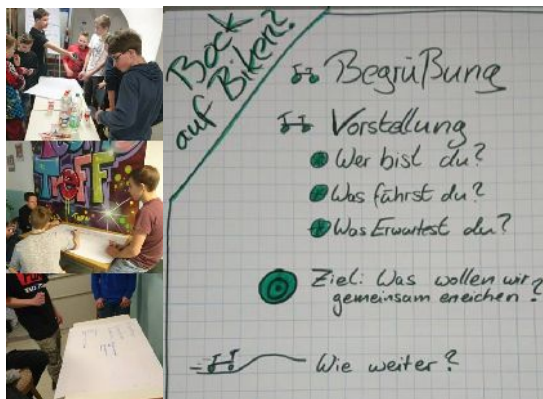 Bock
auf Biken?
Begrüßung
Vorstellung
Wer bist du?
Was fährst du?
Was Erwartest du?
Ziel: Was wollen wir
gemeinsam erreichen?
Wie weiter?
Treff